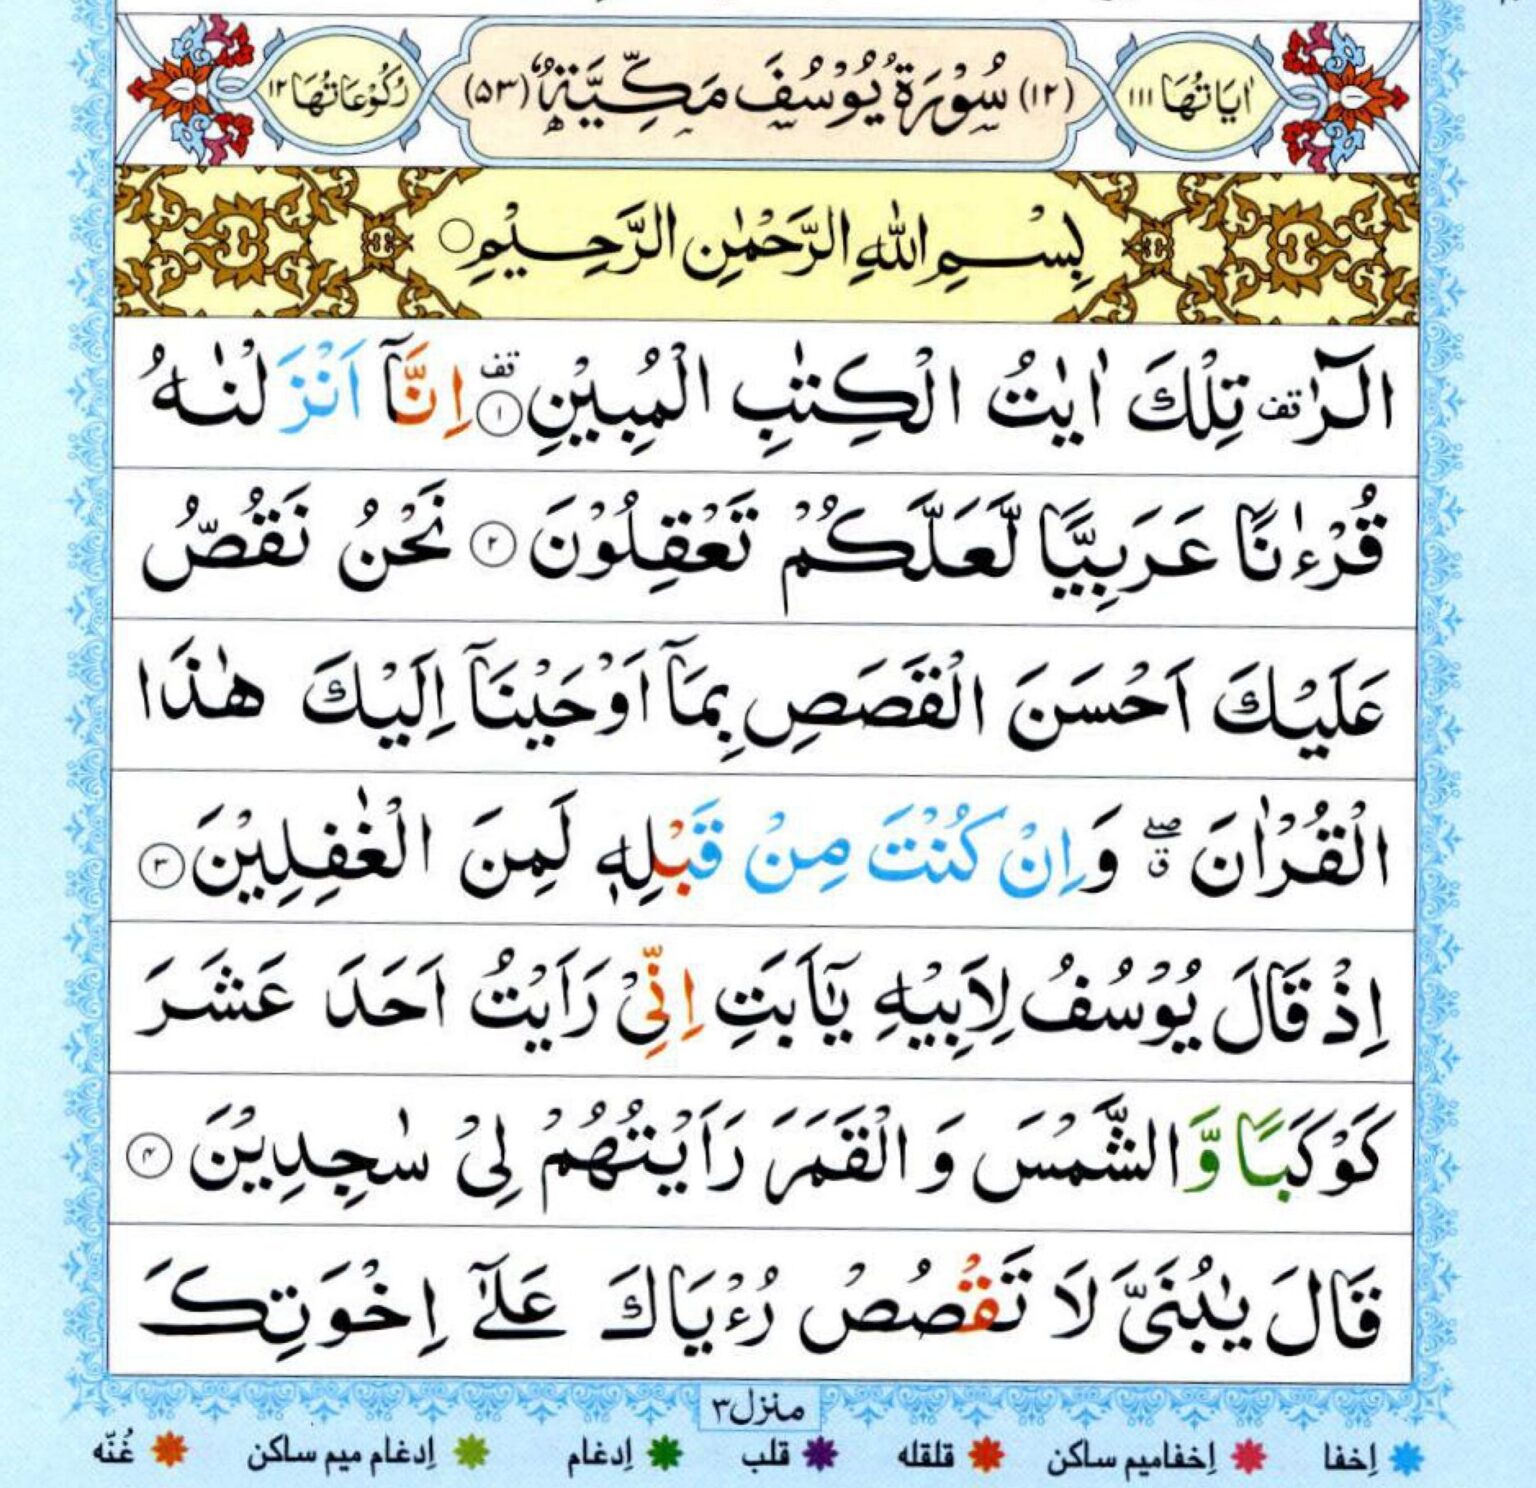 اٰيَاتُهَا ١١١ (١٢) سُوْرَةُ يُوْسُفَ مَكِّيَّةٌ (٥٣) رُكُوْعَاتُهَا ١٢
بِسْمِ اللّٰهِ الرَّحْمٰنِ الرَّحِيْمِ
الٓرٰ ۫ تِلْكَ اٰيٰتُ الْكِتٰبِ الْمُبِيْنِ ۫ ١ اِنَّاۤ اَنْزَلْنٰهُ
قُرْءٰنًا عَرَبِيًّا لَّعَلَّكُمْ تَعْقِلُوْنَ ٢ نَحْنُ نَقُصُّ
عَلَيْكَ اَحْسَنَ الْقَصَصِ بِمَاۤ اَوْحَيْنَاۤ اِلَيْكَ هٰذَا
الْقُرْاٰنَ ۖ ق وَاِنْ كُنْتَ مِنْ قَبْلِهٖ لَمِنَ الْغٰفِلِيْنَ ٣
اِذْ قَالَ يُوْسُفُ لِاَبِيْهِ يٰۤاَبَتِ اِنِّيْ رَاَيْتُ اَحَدَ عَشَرَ
كَوْكَبًا وَّالشَّمْسَ وَ الْقَمَرَ رَاَيْتُهُمْ لِيْ سٰجِدِيْنَ ٤
قَالَ يٰبُنَيَّ لَا تَقْصُصْ رُءْيَاكَ عَلٰۤى اِخْوَتِكَ
منزل ٣
اِخفا اِخفامیم ساکن قلقله قلب اِدغام اِدغام میم ساکن غُنّه